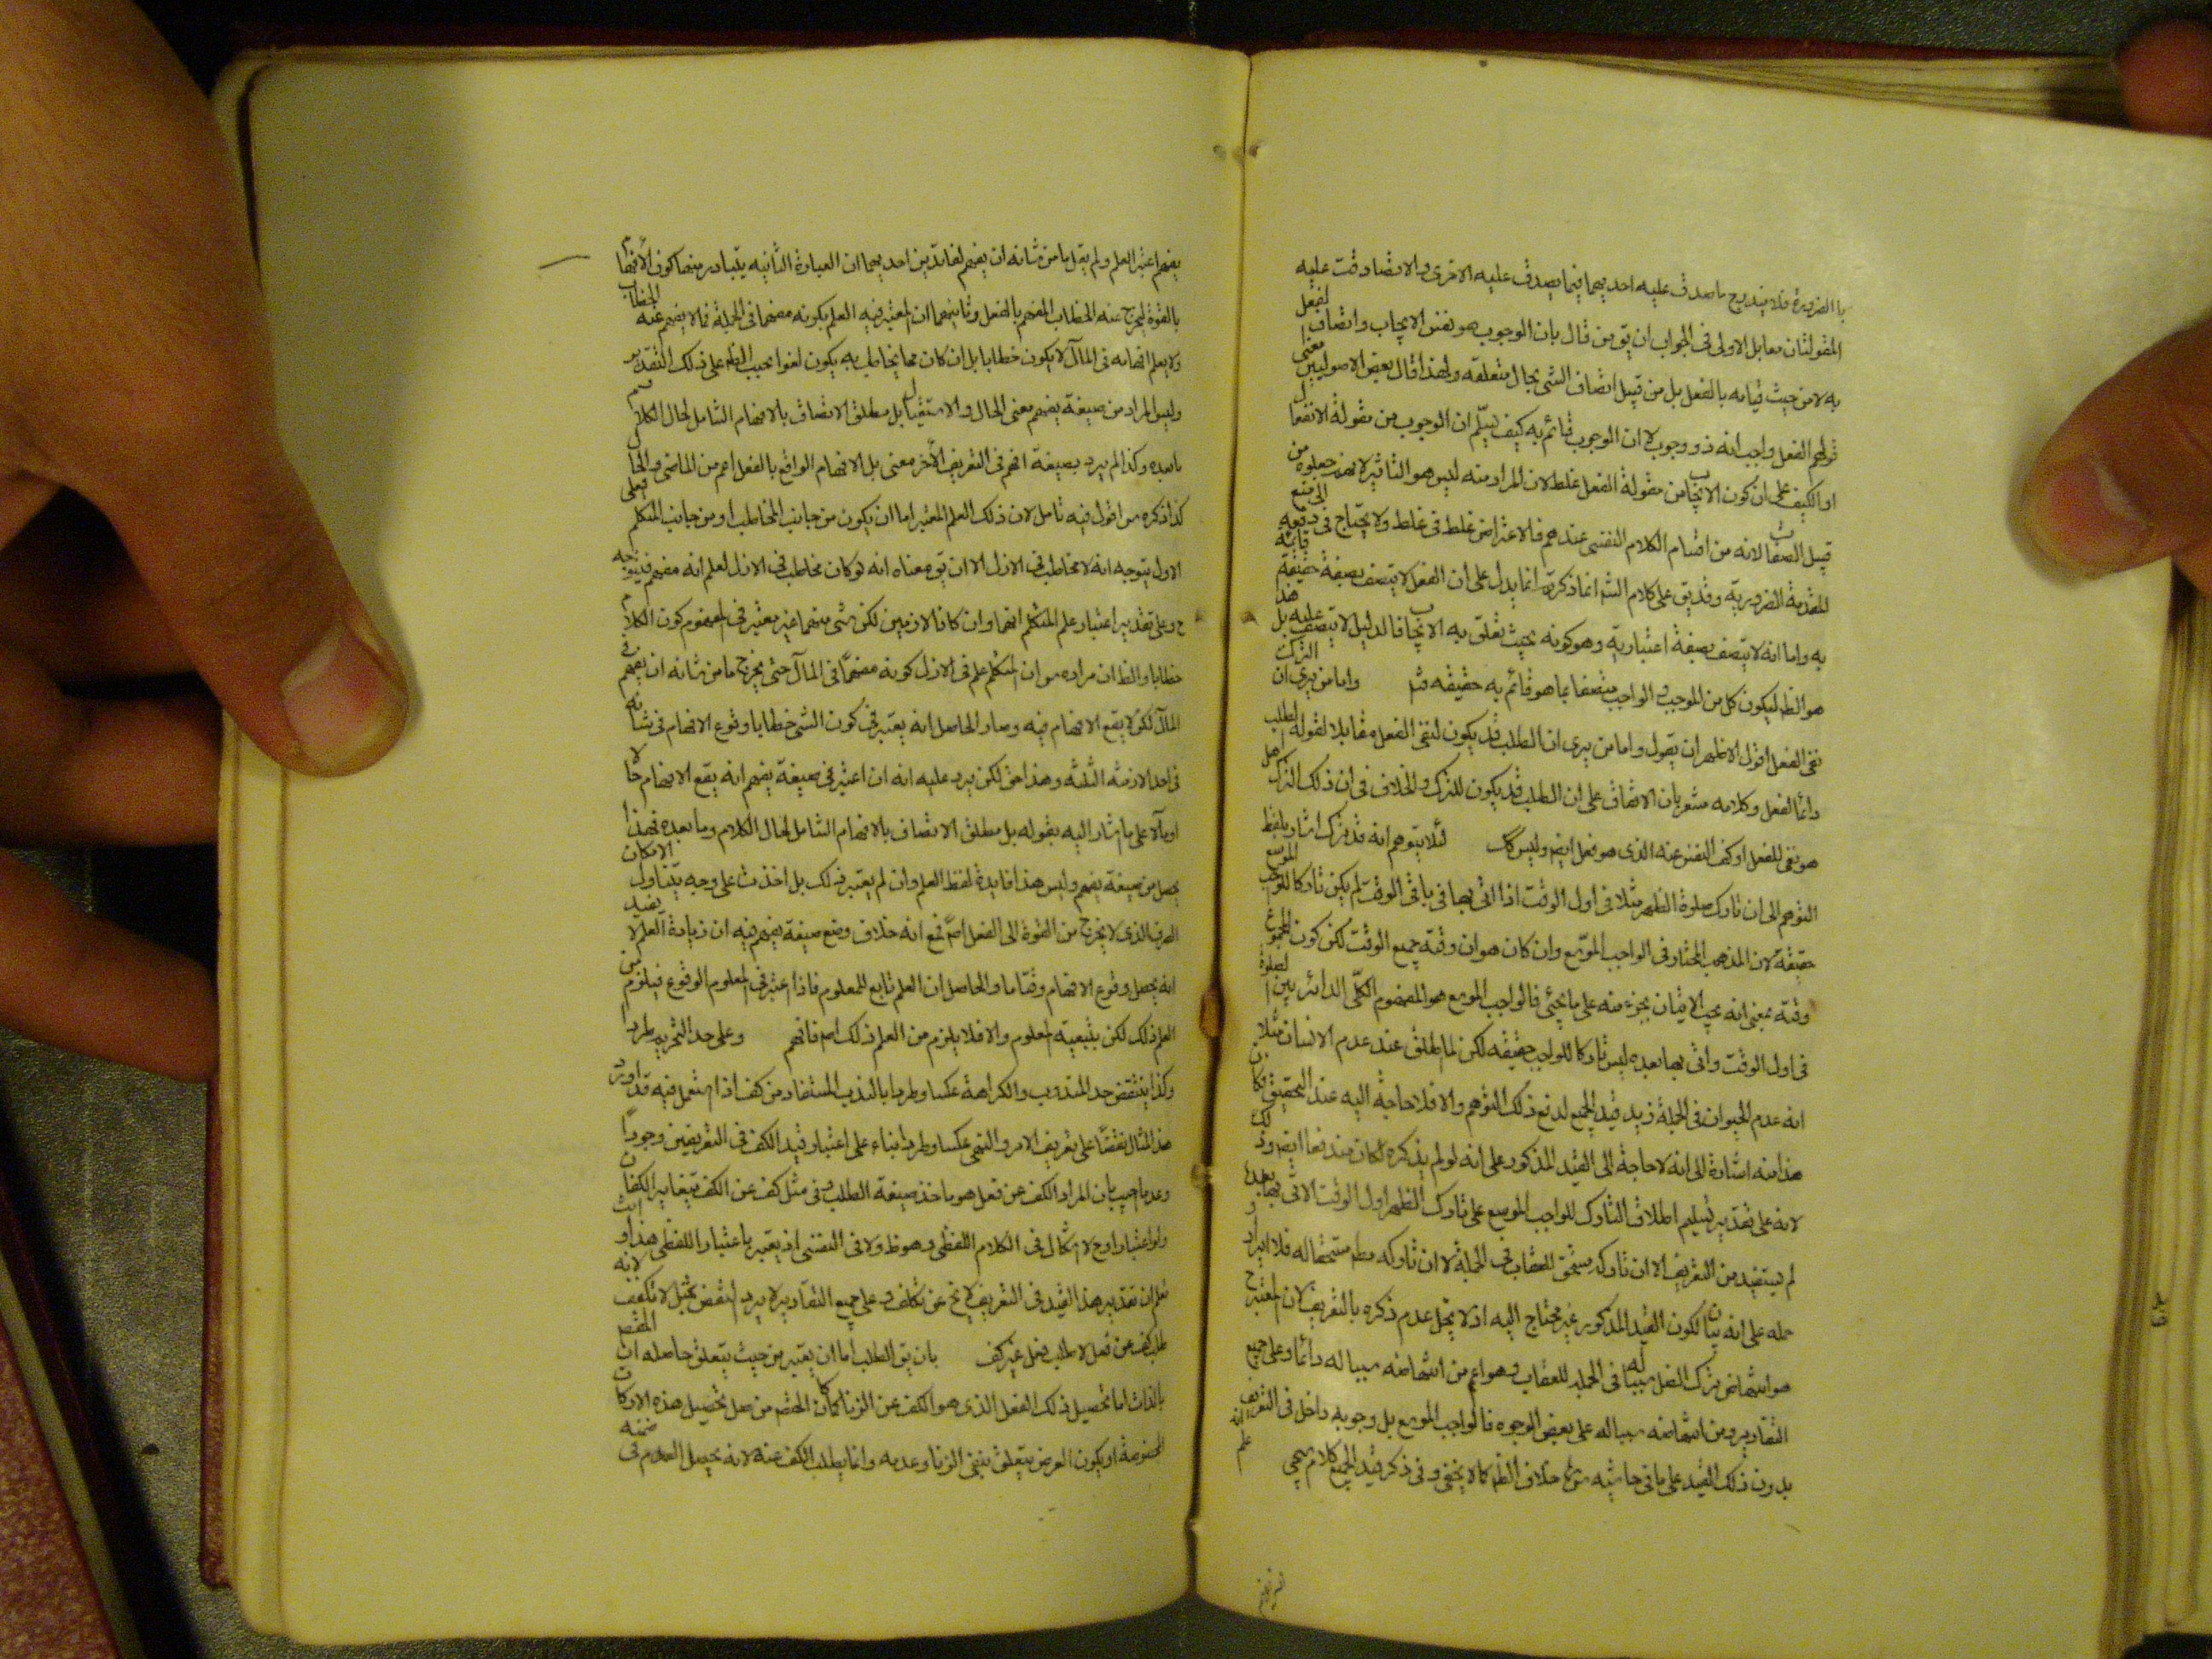 بالضرورة فلا يندرج ما صدق عليه احديهما فيما يصدق عليه الاخرى والا تصادقت عليه
المقولتان مقابل الاولى فى الجواب ان يق من قال بان الوجوب هو نفس الايجاب واتصاف الفعل
به لا من حيث قيامه بالفعل بل من قبيل اتصاف الشى بحال متعلقه ولهذا قال بعض الاصوليين معنى
قولهم الفعل واجب انه ذو وجوب لا ان الوجوب قائم به كيف يسلّم ان الوجوب من مقولة الانفعال
او الكيف على ان كون الايجاب من مقولة الفعل غلط لان المراد منه ليس هو التاثير لانهم جعلوه من
قبيل الصفات لانه من اقسام الكلام النفسى عندهم فالاعتراض غلط فى غلط ولا يحتاج فى دفعه الى منع
المقدمة الضرورية وقد يق على كلام الشه انما ذكرته انما يدل على ان الفعل لا يتصف بصفة حقيقة قائمة
به واما انه لا يتصف بصفة اعتبارية وهو كونه بحيث تعلق به الايجاب فالدليل لا يتصف عليه بل هذا
هو الظ ليكون كل من الموجب والواجب متصفا بما هو قائم به حقيقه واما من يرى ان الترك
نفى الفعل اقول الاظهر ان يقول واما من يرى ان الطلب قد يكون لنفى الفعل مقابلا لقوله الطلب
دائما لفعل وكلامه مشعر بان الاتفاق على ان الطلب قد يكون للترك والخلاف فى ان ذلك الترك هل
هو نفى للفعل او كف النفس عنه الذى هو فعل ايض وليس كك لئلا يتوهم انه قد ترك اشار بلفظ
التوهم الى ان تارك صلوة الظهر مثلا فى اول الوقت اذا اتى بها فى باقى الوقت لم يكن تاركا للواجب الموسع
حقيقة لان المذهب المختار فى الواجب الموسع وان كان هو ان وقته جميع الوقت لكن كون المجموع
وقته بمعنى انه يجب الاتيان بجزء منه على ما يجئى فالواجب الموسع هو المفهوم الكلّى الدائر بين الصلوة
فى اول الوقت واتى بها بعده ليس تاركا للواجب حقيقه لكن لما اطلق عند عدم الانسان مثلا
انه عدم الحيوان فى الجملة زيد قيد الجميع لدفع ذلك التوهم والا فلا حاجة اليه عند التحقيق فكان
هذا منه اشارة الى انه لا حاجة الى القيد المذكور على انه لو لم يذكره لكان مندفعا ايض وذلك
لانه على تقدير تسليم اطلاق التارك للواجب الموسع على تارك الظهر اول الوقت الاتى بها بعده
لم يستفد من التعريف الا ان تاركه مستحق للعقاب فى الجملة لا ان تاركه مط مستحقا له فلا ايراد
حمله على انه بيان لكون القيد المذكور غير محتاج اليه اذ لا يخل عدم ذكره بالتعريف لان المعتبر ح
هو انتهاض ترك الفعل له سببا فى الجملة للعقاب وهو اعم من انتهاضه سببا له دائما وعلى جميع
التقادير ومن انتهاضه سببا له على بعض الوجوه فالواجب الموسع بل وجوبه داخل فى التعريف
بدون ذلك القيد على ما فى حاشيه خلاف الظ كما لا يخفى وفى ذكر قيد الجميع كلام سيجى
يفهم اعتبر العلم ولم يقل ما من شانه ان يفهم لفائدتين احديهما ان العبارة الثانيه يتبادر منها كون الافهام
بالقوة ليخرج عنه الخطاب المفهم بالفعل وثانيهما ان المعتبر فيه العلم بكونه مفهما فى الجملة فما لا يفهم عنه الخطاب
ولا يعلم افهامه فى المآل لا يكون خطابا بل ان كان مما يخاطب به يكون لغوا بحسب الظ على ذلك التقدير
وليس المراد من صيغة يفهم معنى الحال والاستقبال بل مطلق الاتصاف بالافهام الشامل لحال الكلام
ما بعده وكذا لم يرد بصيغة افهم فى التعريف الآخر معنى بل الافهام الواقع بالفعل اعم من الماضى والحال
كذا ذكره س اقول فيه تامل لان ذلك العلم المعتبر اما ان يكون من جانب المخاطب او من جانب المتكلم فعلى
الاول يتوجه انه لا مخاطب فى الازل الا ان يق معناه انه لو كان مخاطب فى الازل لعلم انه مفهم فيتوجه
ح وعلى تقدير اعتبار علم المتكلم انهما وان كانا لازمين لكن شى منهما غير معتبر فى مفهوم كون الكلام
خطابا والظ ان مراده س ان المتكلم علم فى الازل كونه مفهمًا فى المآل حتى يخرج ما من شانه ان يفهم فى
المآل لكن لا يقع الافهام فيه وصار الحاصل انه يعتبر فى كون الشى خطابا وقوع الافهام فى شانه
فى احد الازمنه الثلثه وهذا حق لكن يرد عليه انه ان اعتبر فى صيغة يفهم انه يقع الافهام حالا
او مآلا على ما اشار اليه بقوله بل مطلق الاتصاف بالافهام الشامل لحال الكلام وما بعده فهذا
يحصل من صيغة يفهم وليس هذا فايدة لفظ العلم وان لم يعتبر ذلك بل اخذت على وجه يتناول الامكان
الصرف الذى لا يخرج من القوة الى الفعل اصّ فمع انه خلاف وضع صيغة يفهم فيه ان زيادة العلم لا يفيد
انه يحصل وقوع الافهام وقتا ما والحاصل ان العلم تابع للمعلوم فاذا اعتبر فى المعلوم الوقوع فيلزم من
العلم ذلك لكن بتبعيته المعلوم والا فلا يلزم من العلم ذلك اص فافهم وعلى حد التحريم طردا
وكذا ينتقض حد المندوب والكراهة عكسا وطردا بالندب المستفاد من كف اذا استعمل فيه
هذا المثال نقضًا على تعريف الامر والنهى عكسا وطردا بناء على اعتبار قيد الكف فى التعريفين وجودًا
وعدما اجيب بان المراد الكف عن فعل هو ماخذ صيغة الطلب وفى مثل كف عن الكف يتغاير الكفان
ولو اعتبارا وح لا اشكال فى الكلام اللفظى وهو ظ ولا فى النفسى اذ يعتبر باعتبار اللفظى هذا وانت
تعلم ان تقدير هذا القيد فى التعريف لا يخ عن تكلف وعلى جميع التقادير لا يرد النقض بمثل لا تكفف لانه
طلب كف عن فعل لا طلب فعل غير كف بان يق الطلب اما ان يعتبر من حيث يتعلق حاصله ان المقص
بالذات اما تحصيل ذلك الفعل الذى هو الكف عن الزنا كما كان الغرض من صل تحصيل هذه الاركان
المخصوصة او يكون الغرض يتعلق بنفى الزنا وعدمه وانما يطلب الكف عنه لانه يحصل العدم فى ضمنه